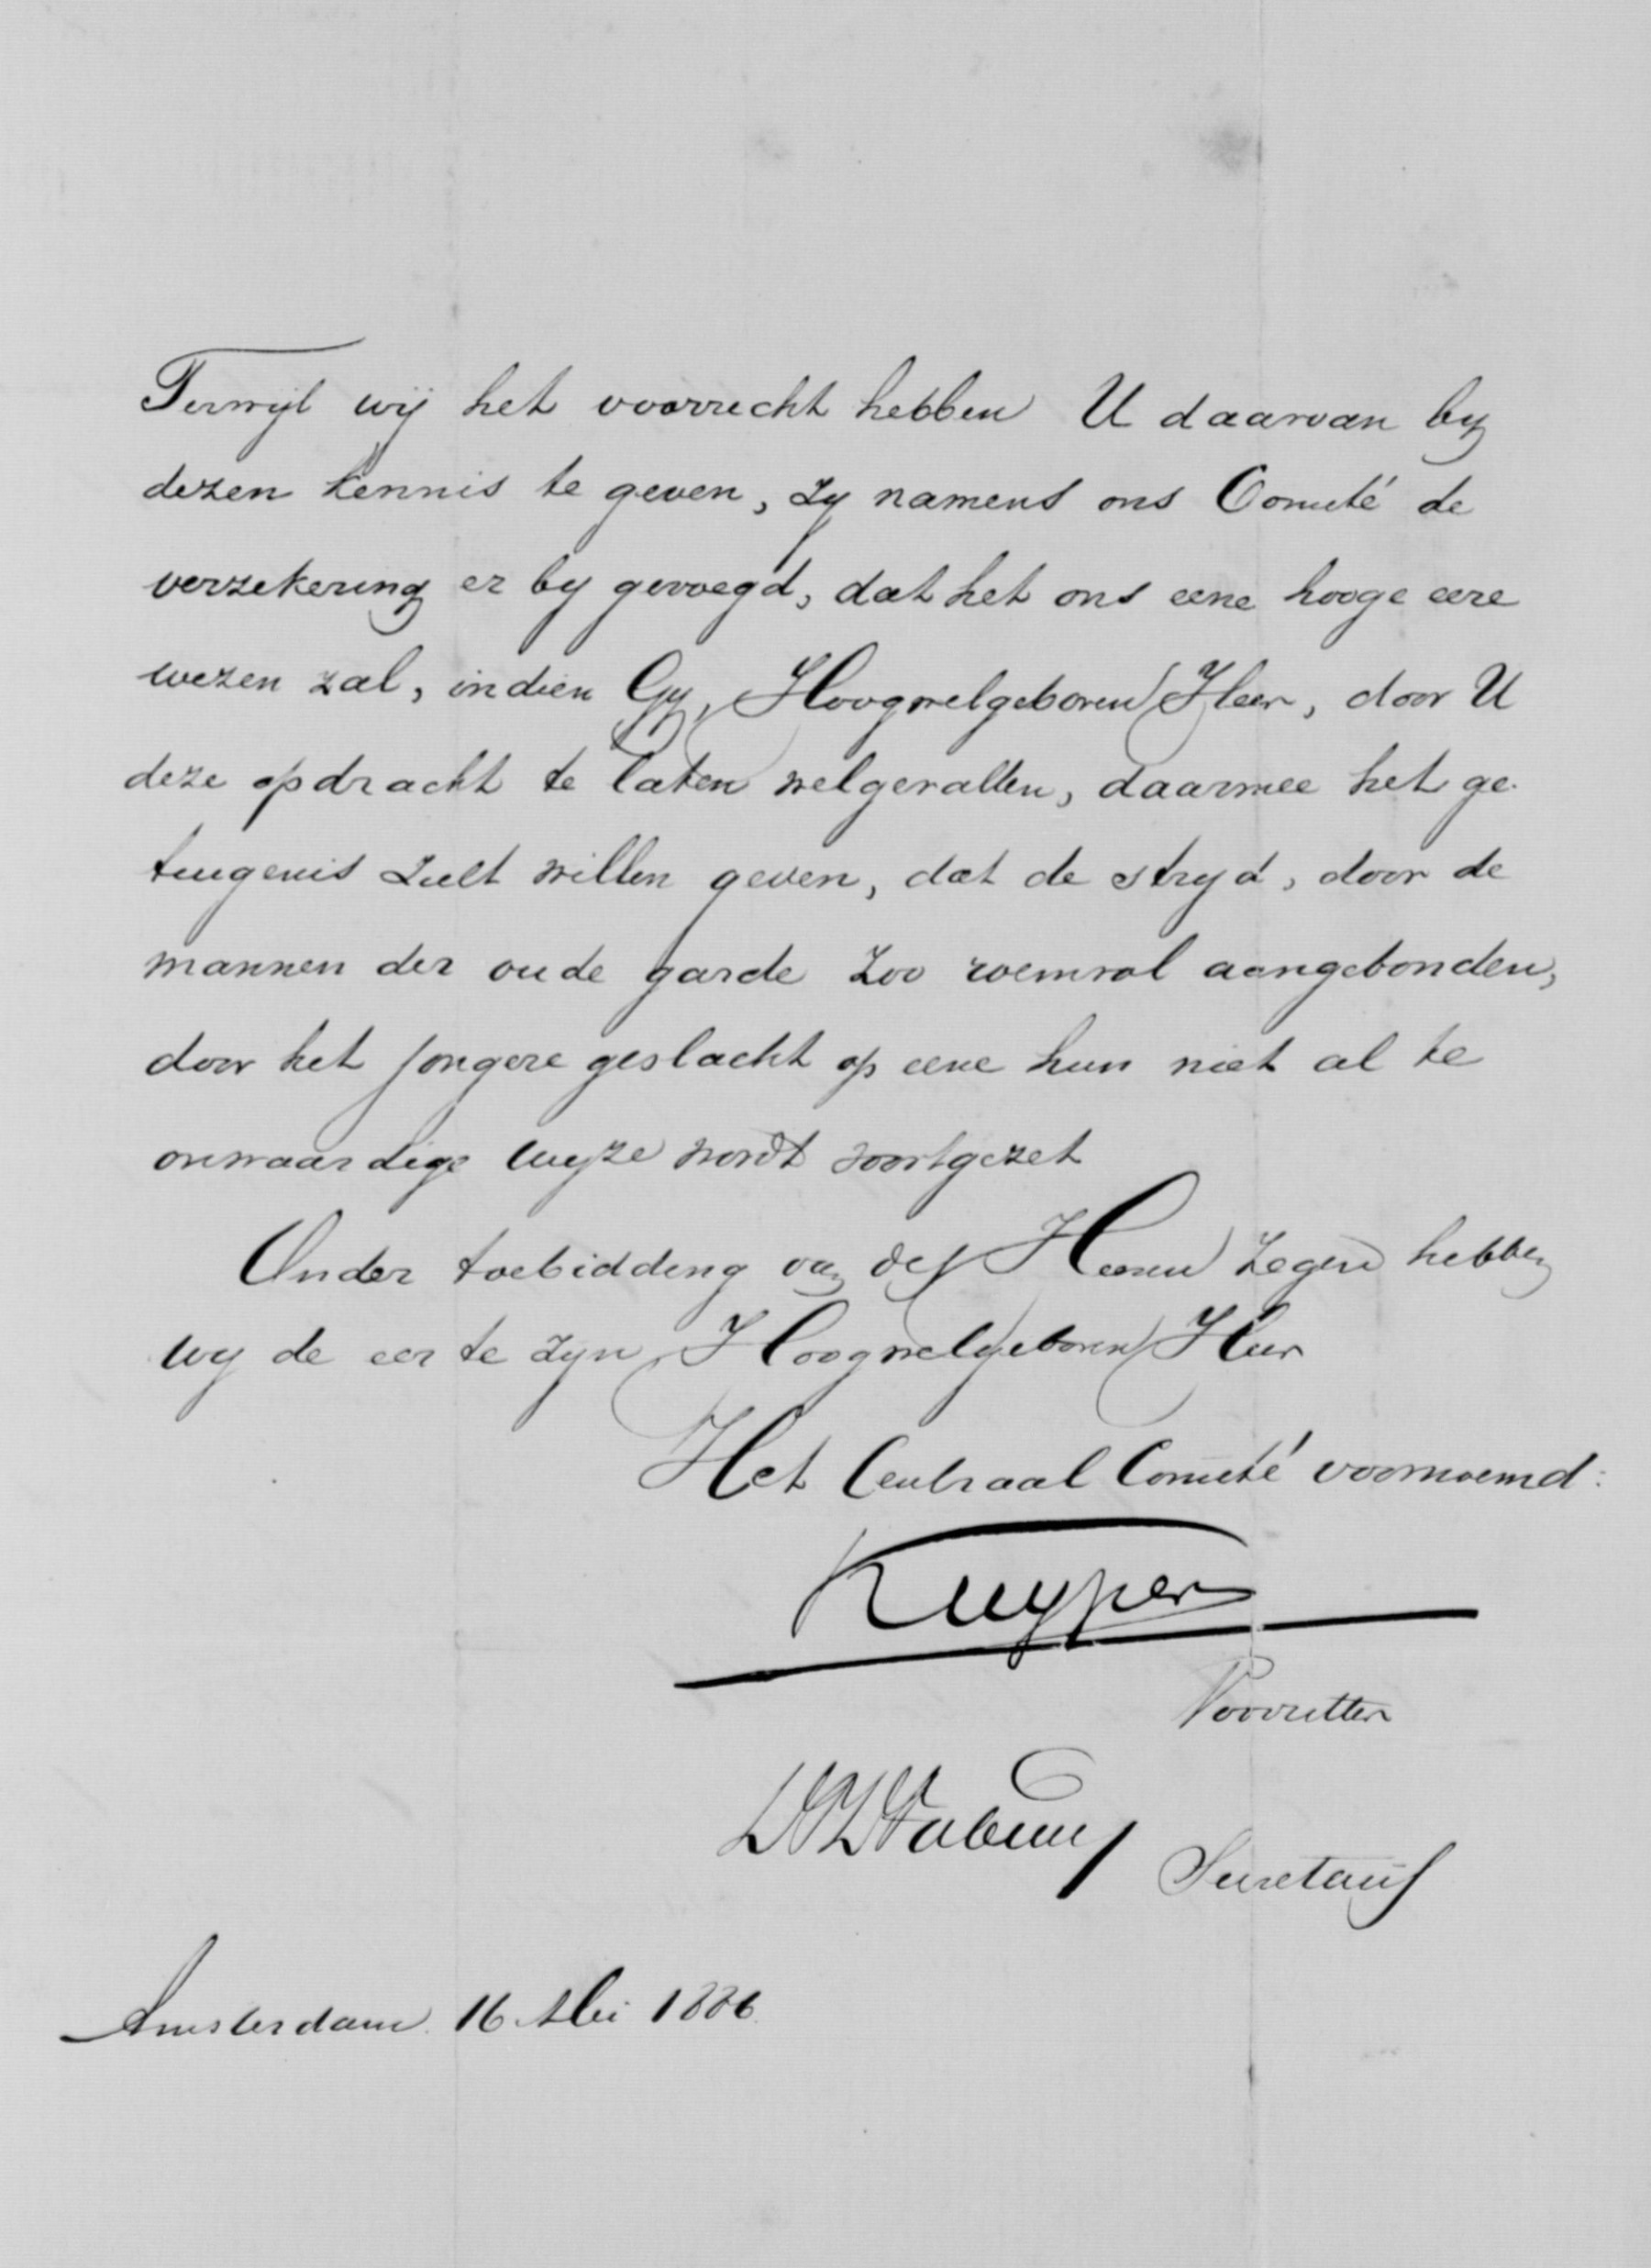 Terwijl wij het voorrecht hebben U daarvan by
dezen kennis te geven, zy namens ons Comité de
verzekering er by gevoegd, dat het ons eene hooge eere
wezen zal, indien Gy, Hoogwelgeboren Heer, door U
deze opdracht te laten welgevallen, daarmee het ge-
tuigenis zult willen geven, dat de stryd, door de
mannen der oude garde zoo roemvol aangebonden,
door het jongere geslacht op eene hun niet al te
onwaardige wyze wordt voortgezet
Onder toebidding van des Heeren zegen hebben
wy de eer te zyn, Hoogwelgeboren Heer
Het Centraal Comité voornoemd:
Kuyper
Voorzitter
Secretaris
Amsterdam 16 Mei 1886.